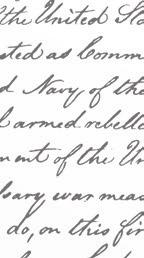 the United Sta
sted as Comm
d Navy of the
l armed rebelli
ment of the Un
ssary war meas
do, on this fir